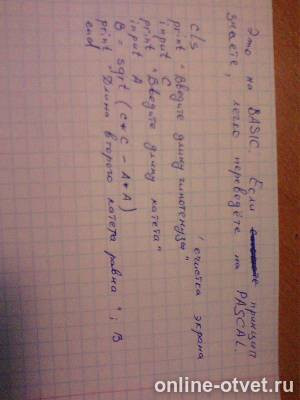 Это на BASIC. Если принцип
знаете, легко переведёте на PASCAL.
cls ' очистка экрана
print "Введите длину гипотенузы"
input C
print "Введите длину катета"
input A
B = sqrt (C*C - A*A)
print "Длина второго катета равна "; B
end
online-otvet.ru